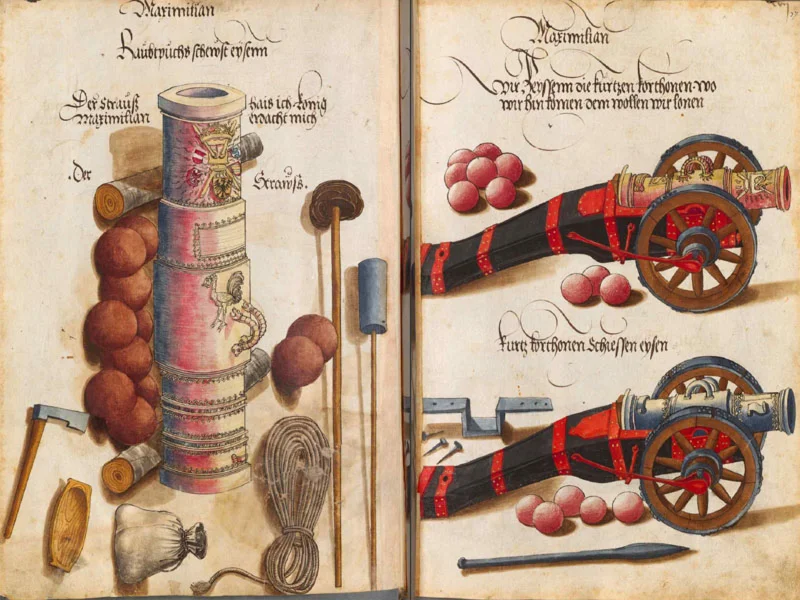 Maximilian
schewst eysenn
Der Strauß hais ich König
Maximilian erdacht mich
.Der Strauß.
Maximilian
Wir Zwen die kurtzen dorthonen wo
wir hin komen dem wollen wir lonen
kurtz dorthonen Schiessen eysen